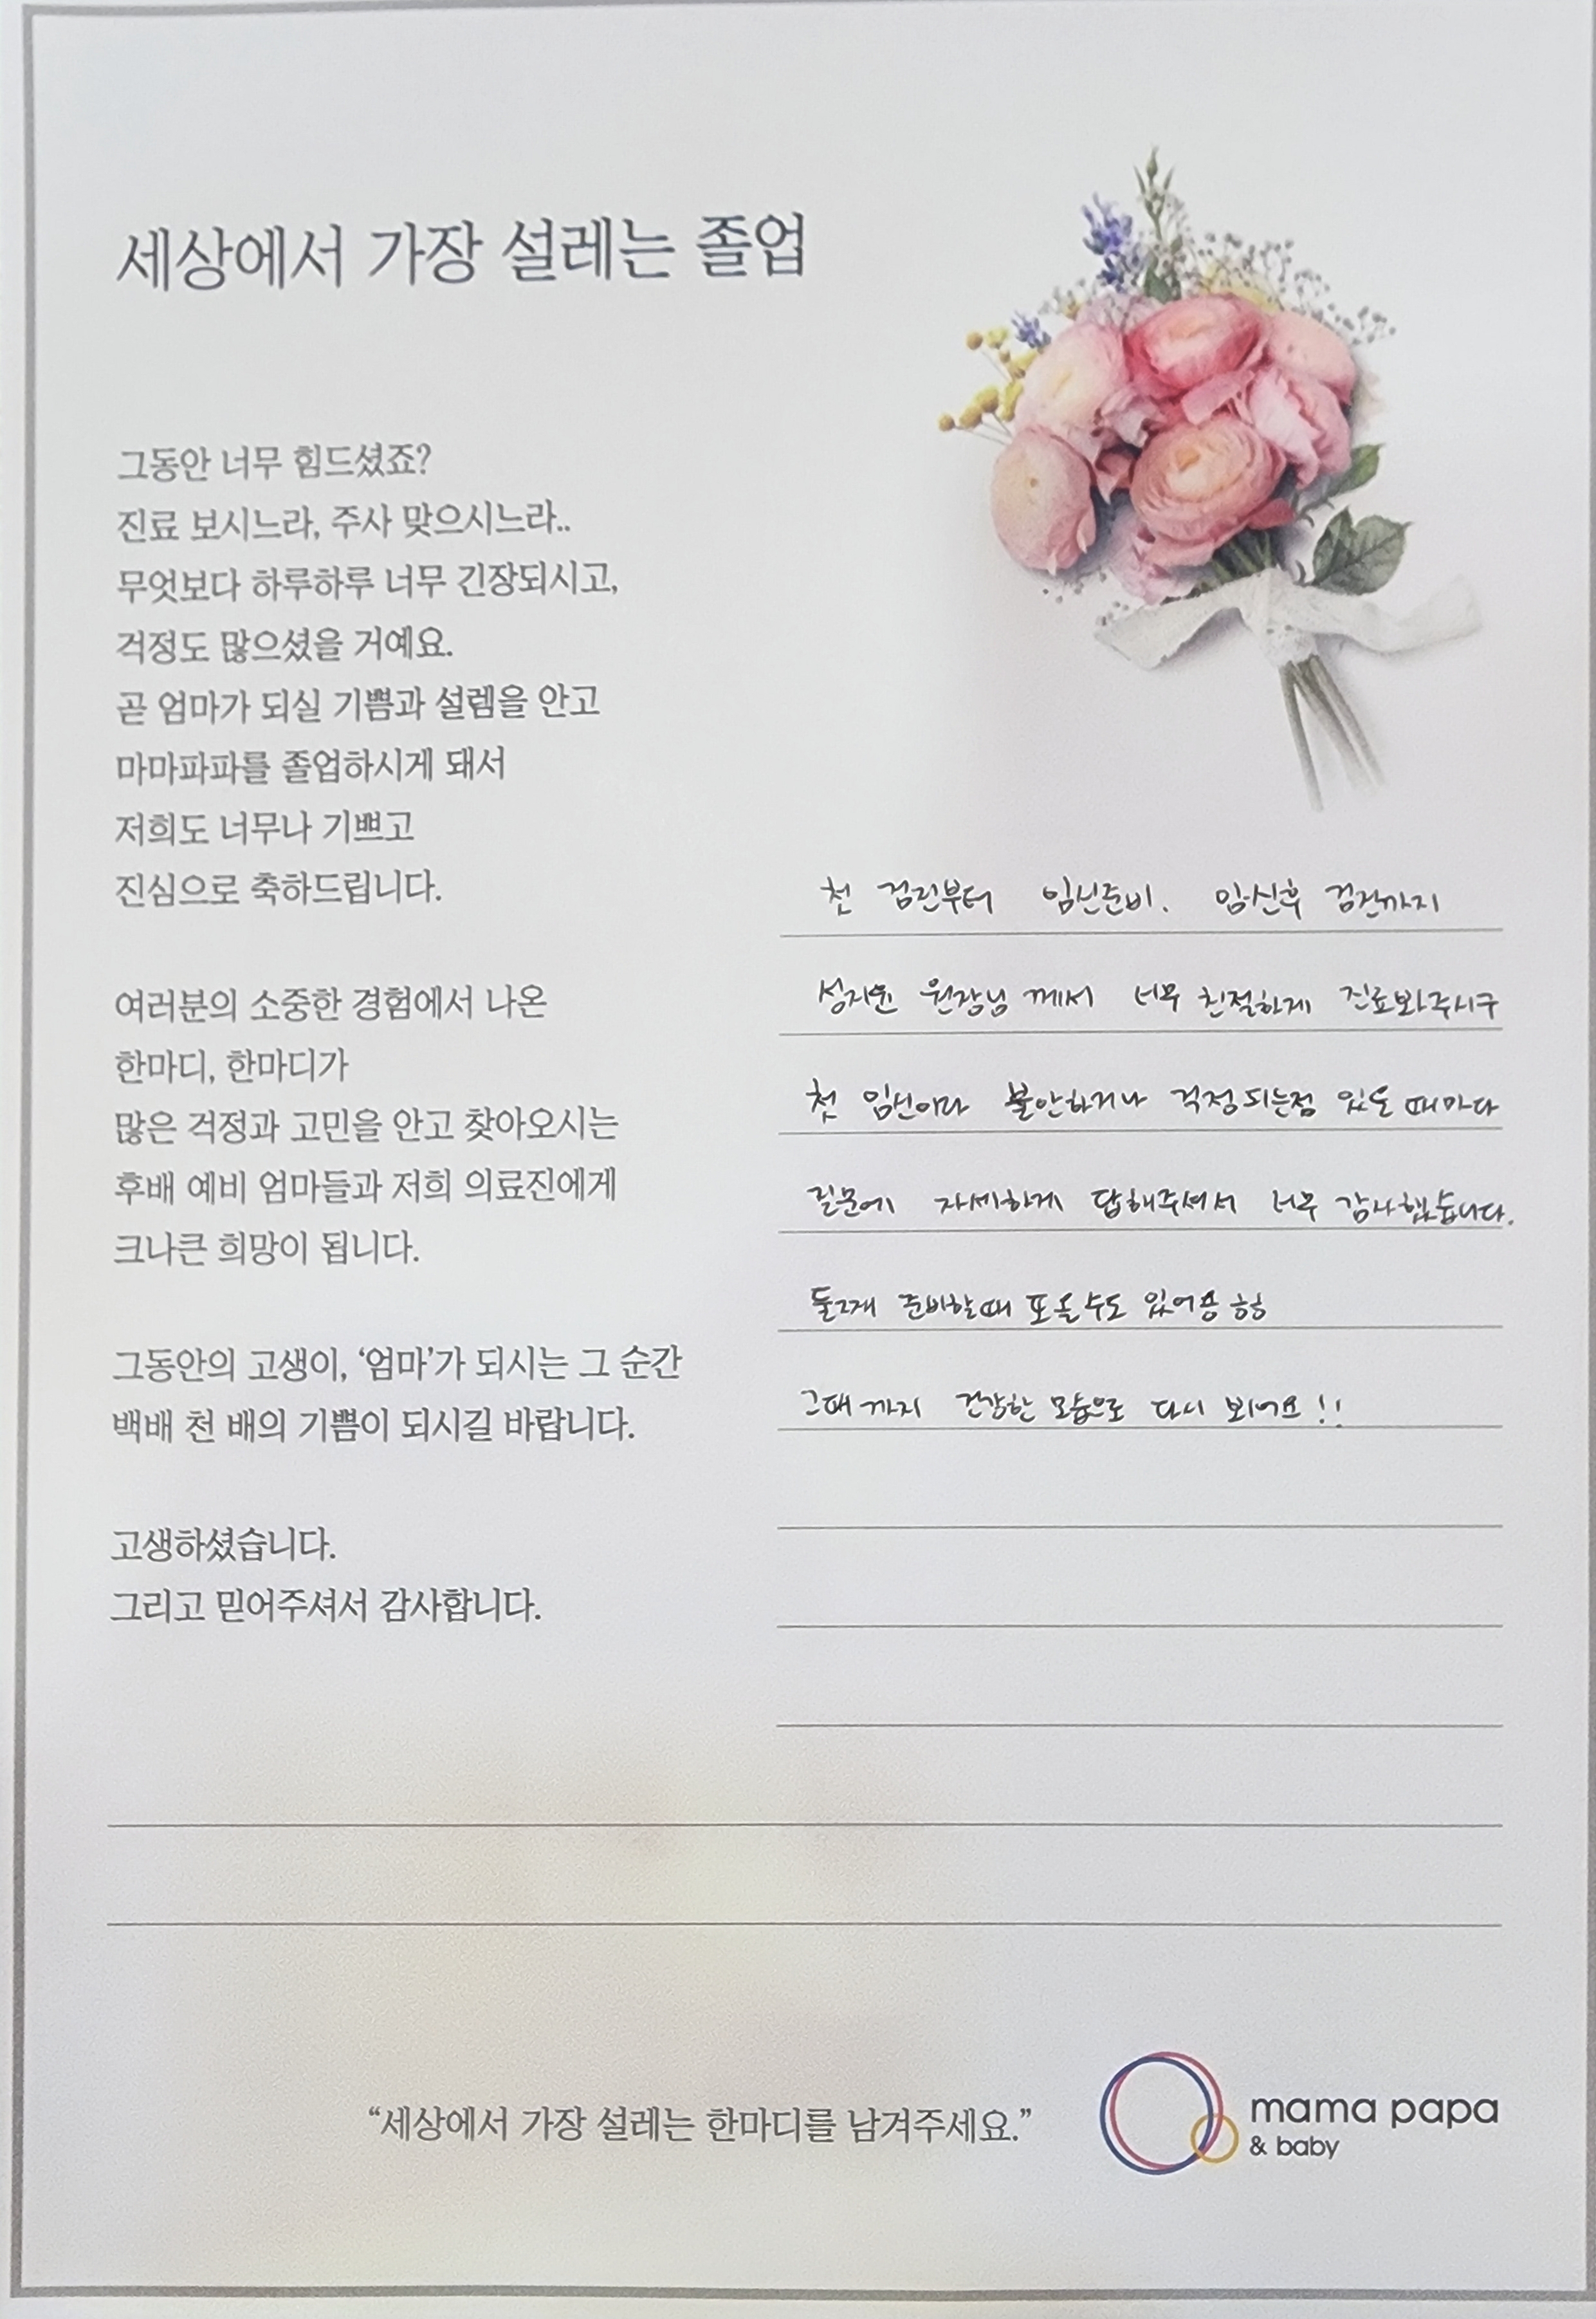 세상에서 가장 설레는 졸업
그동안 너무 힘드셨죠?
진료 보시느라, 주사 맞으시느라..
무엇보다 하루하루 너무 긴장되시고,
걱정도 많으셨을 거예요.
곧 엄마가 되실 기쁨과 설렘을 안고
마마파파를 졸업하시게 돼서
저희도 너무나 기쁘고
진심으로 축하드립니다.
여러분의 소중한 경험에서 나온
한마디, 한마디가
많은 걱정과 고민을 안고 찾아오시는
후배 예비 엄마들과 저희 의료진에게
크나큰 희망이 됩니다.
그동안의 고생이, ‘엄마’가 되시는 그 순간
백배 천 배의 기쁨이 되시길 바랍니다.
고생하셨습니다.
그리고 믿어주셔서 감사합니다.
첫 검진부터 임신준비. 임신후 검진까지
원장님 께서 너무 친절하게 진료봐주시구
첫 임신이라 불안하거나 걱정되는점 있을 때마다
질문에 자세하게 답해주셔서 너무 감사했습니다.
둘째 준비할때 또 올수도 있어용 헝
그때까지 건강한 모습으로 다시 뵈어요!!
“세상에서 가장 설레는 한마디를 남겨주세요.”
mama papa
& baby